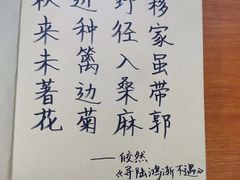 移家虽带郭
野径入桑麻
近种篱边菊
秋来未著花
——皎然
《寻陆鸿渐不遇》